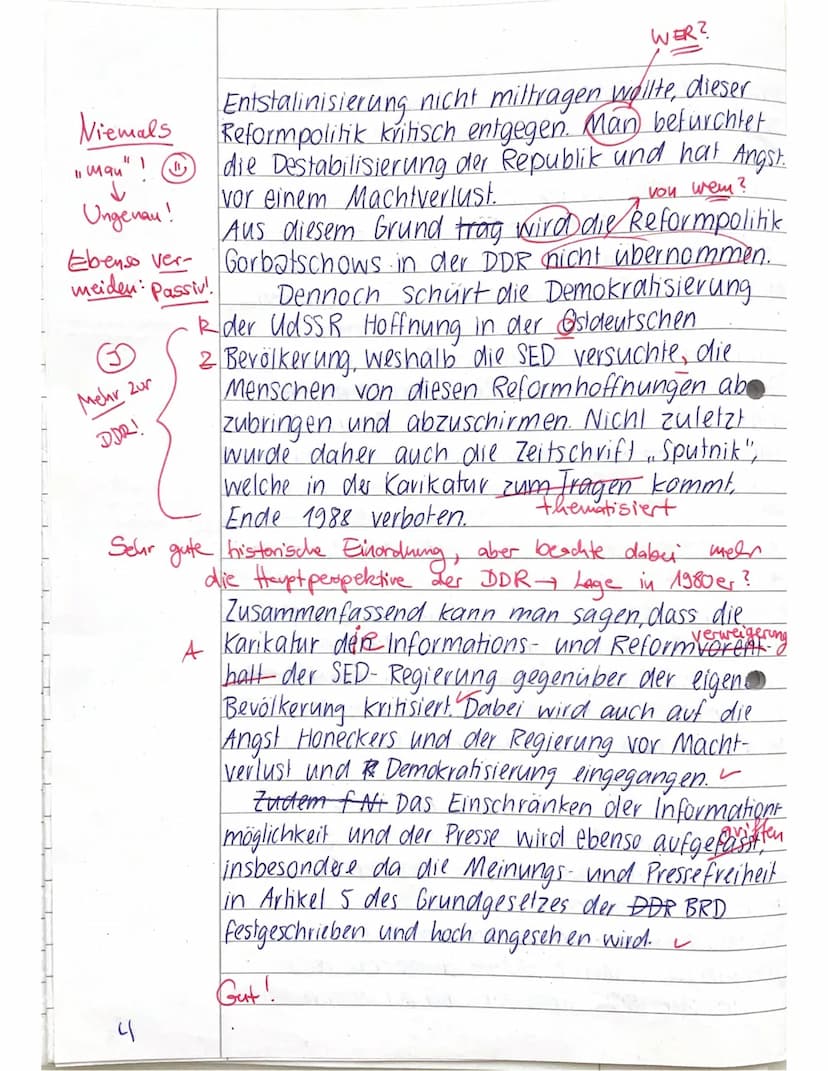 WER?
Entstalinisierung nicht mittragen wollte, dieser
Niemals
Reformpolitik kritisch entgegen. Man befürchtet
"man"!
die Destabilisierung der Republik und hat Angst
vor einem Machtverlust.
Ungenau!
von wem?
Aus diesem Grund trag wird die Reformpolitik
Ebenso ver-
Gorbatschows in der DDR nicht übernommen.
meiden: Passiv!
Dennoch schürt die Demokratisierung
R
der UdSSR Hoffnung in der Ostdeutschen
Z
Bevölkerung, weshalb die SED versuchte, die
Mehr zur
DDR!
Menschen von diesen Reformhoffnungen ab
zubringen und abzuschirmen. Nicht zuletzt
wurde daher auch die Zeitschrift „Sputnik",
welche in der Karikatur zum Tragen kommt,
thematisiert
Ende 1988 verboten.
Sehr gute historische Einordnung, aber beachte dabei mehr
die Hauptperspektive der DDR → Lage in 1980er?
Zusammenfassend kann man sagen, dass die
verweigerung
A
Karikatur die Informations- und Reformvorent-
halt der SED-Regierung gegenüber der eigen
Bevölkerung kritisiert. Dabei wird auch auf die
Angst Honeckers und der Regierung vor Macht-
verlust und R Demokratisierung eingegangen.
Zudem f Ni Das Einschränken der Informations-
möglichkeit und der Presse wird ebenso aufgefasst,
griffen
insbesondere da die Meinungs- und Pressefreiheit
in Artikel 5 des Grundgesetzes der DDR BRD
festgeschrieben und hoch angesehen wird.
Gut!
4